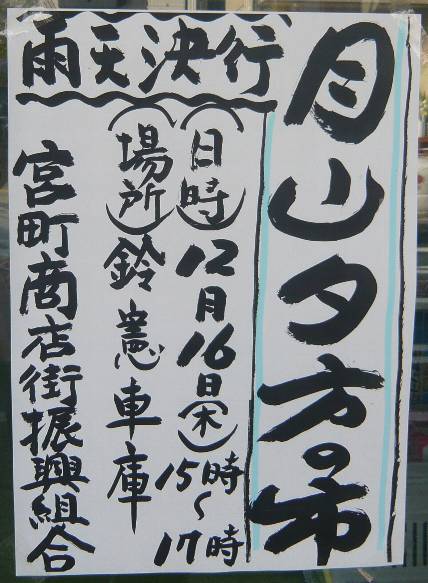 月山夕方の市
雨天決行
(日時)12月16日(木)15時~17時
(場所)鈴憲車庫
宮町商店街振興組合